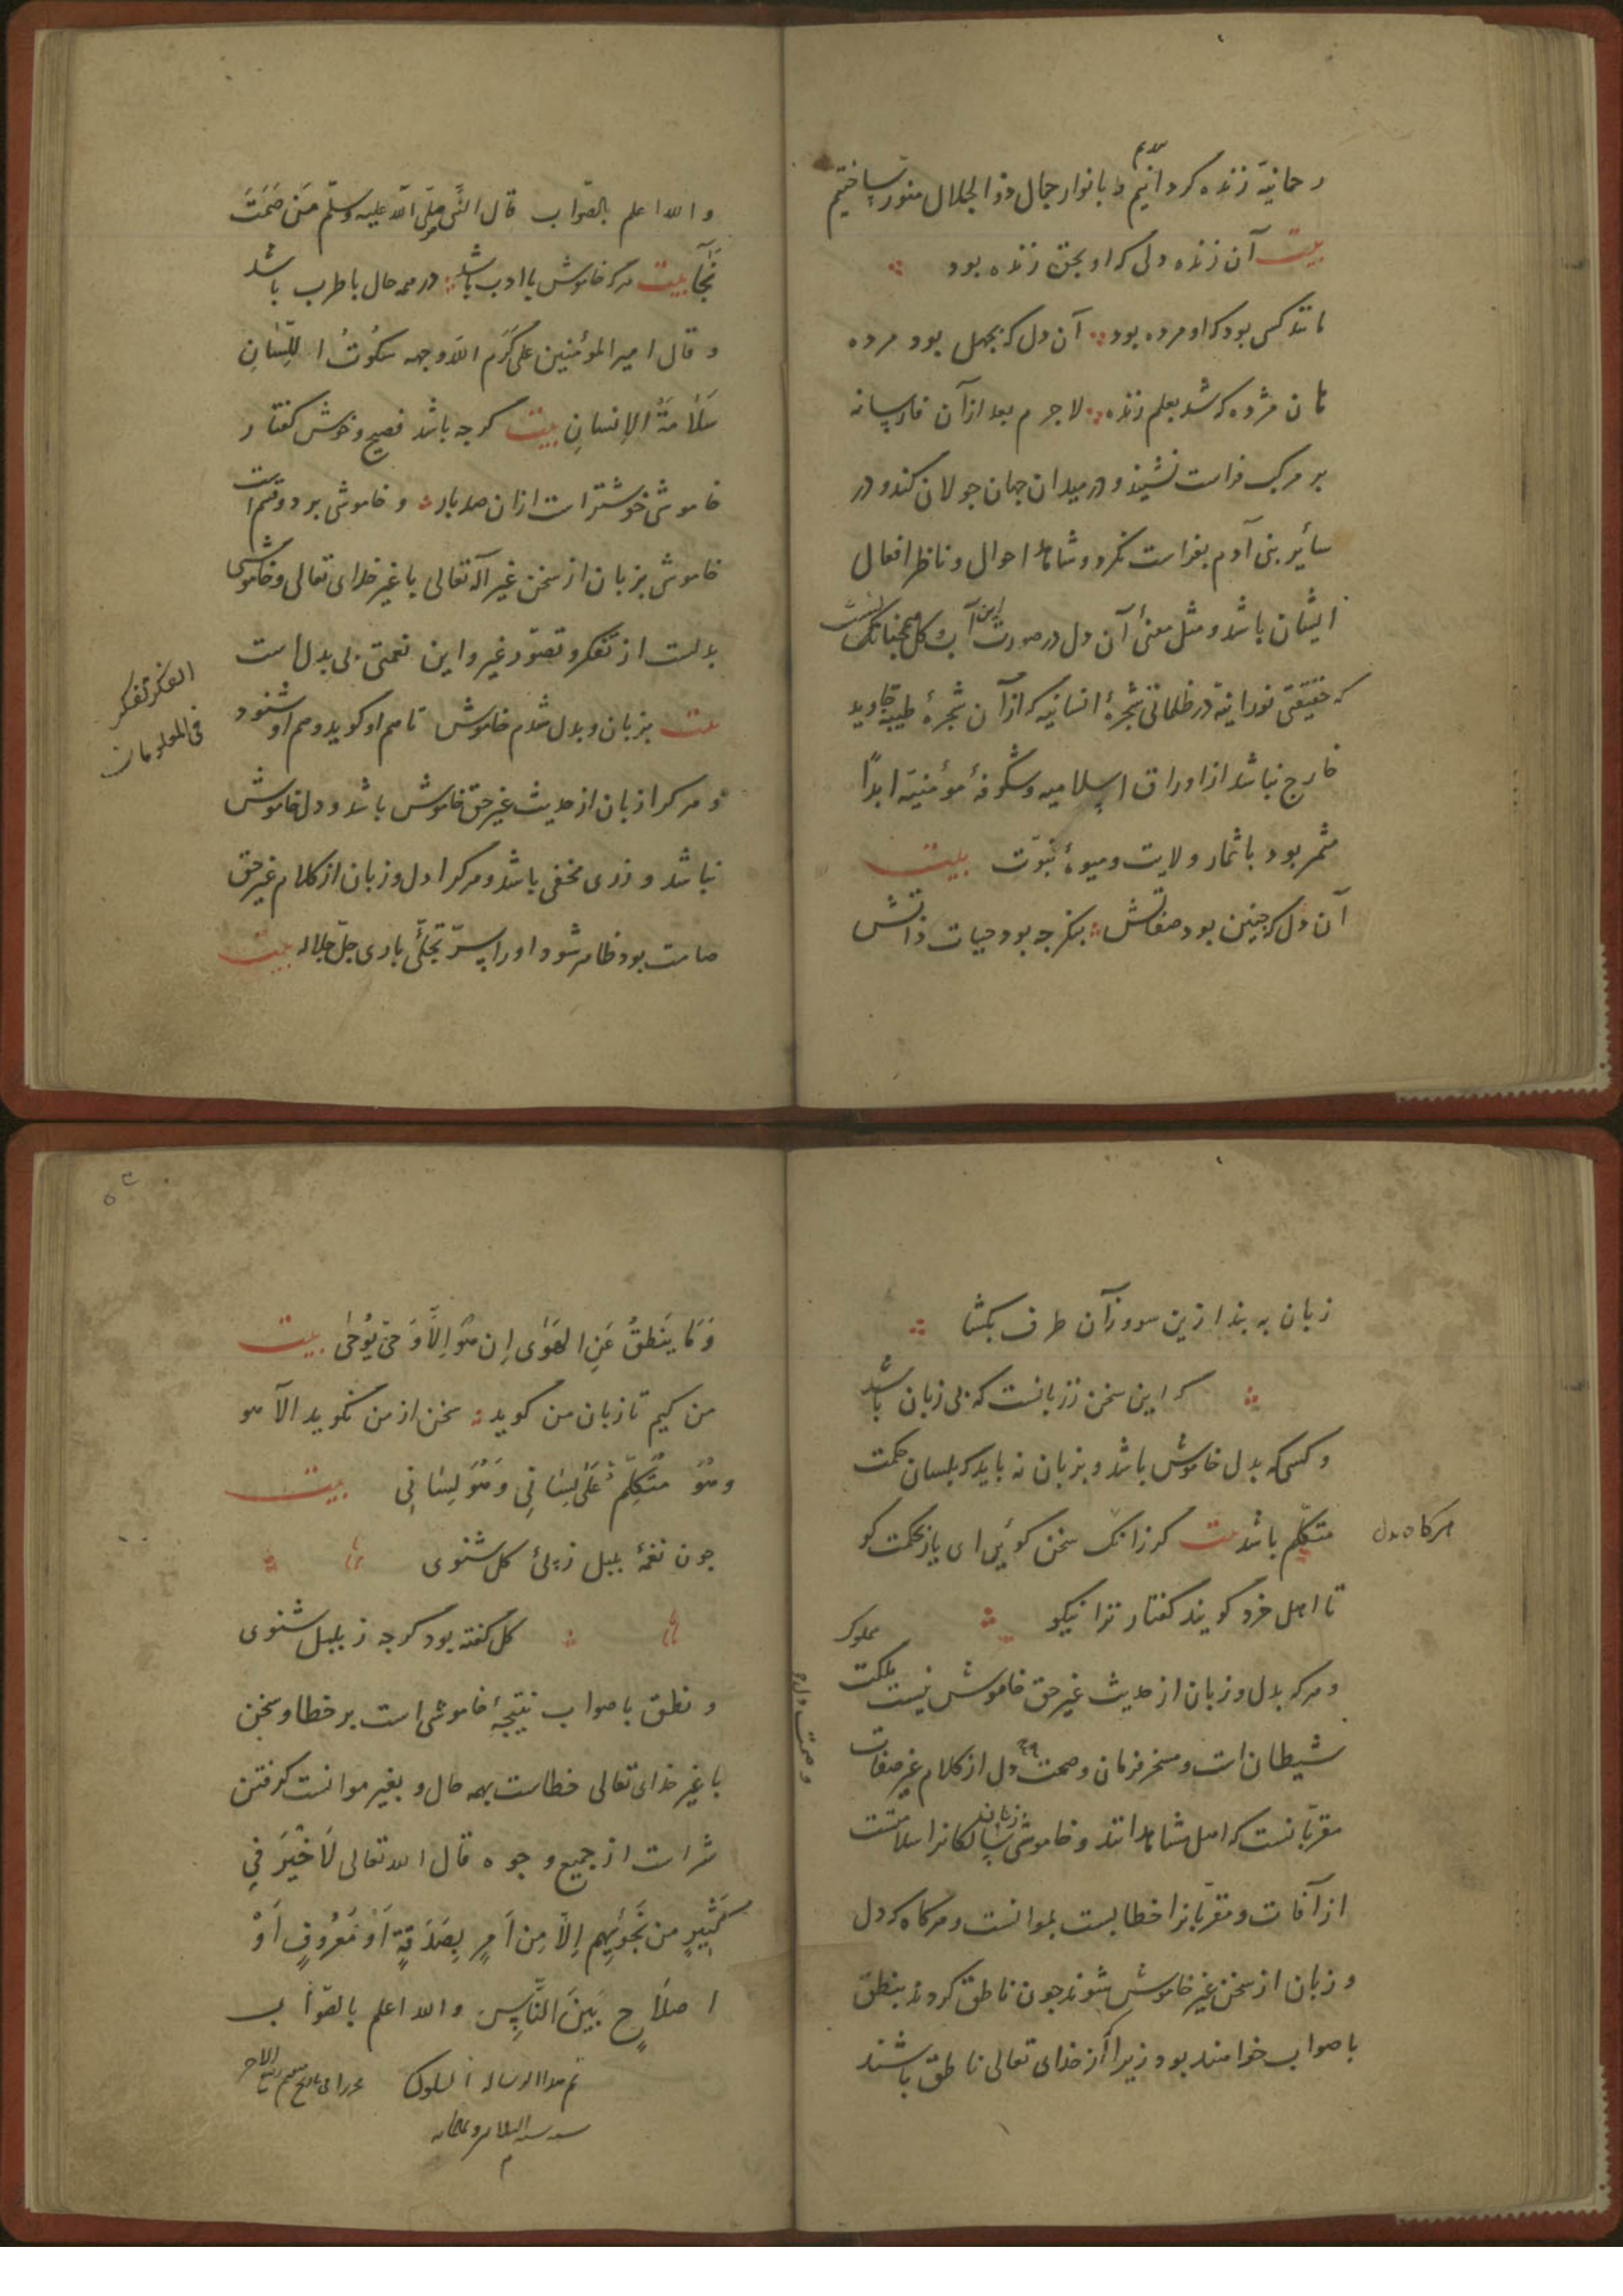 رحمانیّه زنده کردانیم و بانوار جمال ذو الجلال منوّر ساختیم
بیت آن زنده دلی که او بحق زنده بود
مانند کسی بود که او مرده بود آن دل که بجهل بود مرده
مان مژده که شد بعلم زنده لاجرم بعد ازآن فارسانه
بر مرکب فراست نشیند و در میدان جهان جولان کند و در
سائیر بنی آدم بفراست نکرد و شاهد احوال و ناظر افعال
ایشان باشد و مثل معنیٔ آن دل در صورت این آب و کل همچنانکست
که حقیقتی نورانیّه در ظلماتیٔ شجرهٔ انسانیه که ازآن شجرهٔ طیبه جاوید
خارج نباشد از اوراق اسلامیه و شکوفهٔ مؤمنیّه ابدًا
مثمر بود باثمار ولایت و میوهٔ نبوّت بیت
آن دل که چنین بود صفاتش بنکر چه بود حیات ذاتش
والله اعلم بالصّواب قال النّبی صلّی الله علیه وسلّم مَن صَمَتَ
نَجَا بیت هرکه خاموش باادب باشد در همه حال باطرب باشد
و قال امیر المؤمنین علی کَرّم الله وجهه سکُوتُ اللِّسَانِ
سَلَامَةُ الإنسَانِ بیت کرچه باشد فصیح و خوش کفتار
خاموشی خوشترات ازان صد بار و خاموشی بر دو قسم است
خاموش بزبان از سخن غیر الله تعالی باغیر خدای تعالی و خاموشی
بدلست از تفکر و تصوّر غیر و این نعمتی بی بدل است
بیت بزبان و بدل شدم خاموش تا هم او کوید و هم او شنود
و هرکرا زبان از حدیث غیر حق خاموش باشد و دل خاموش
نباشد وزری مخفی باشد و هرکرا دل و زبان از کلام غیر حق
صامت بود ظاهر شود او را سرّ تجلّیٔ باری جلّ جلاله بیت
الفکر تفکر
فی المعلومات
زبان به بند ازین سو وزآن طرف بکشا
که این سخن ززبانست که بی زبان باشد
و کسی که بدل خاموش باشد و بزبان نه باید که بلسان حکمت
متکلّم باشد بیت کرزانک سخن کوئی ای یاز بحکمت کو
تا اهل خرد کویند کفتار ترا نیکو
و هرکه بدل و زبان از حدیث غیر حق خاموش نیست مملکت
شیطان ات و مسخر فرمان و صمت دل از کلام غیر صفات
مقرّبانست که اهل مشاهدا تند و خاموشیٔ زبان سالکانرا سلامتست
از آفات و مقرّبانرا خطابست بموانست و هرکاه که دل
و زبان از سخن غیر خاموش شوند چون ناطق کردند بنطق
باصواب خواهند بود زیرا که از خدای تعالی ناطق باشند
هرکاه بدل
مملوک
و صمت دل
وَمَا یَنطِقُ عَنِ الهَوٰی إِن هُوَ إِلَّا وَحیٌ یُوحٰی بیت
من کیم تا زبان من کوید سخن از من نکوید الا هو
وهُوَ مُتَکلِّمٌ عَلٰی لِسَانِی وَهُوَ لِسَانِی بیت
چون نغمهٔ بلبل زپیٔ کل شنوی
کل کفته بود کرچه ز بلبل شنوی
و نطق باصواب نتیجهٔ خاموشی است بر خطا و سخن
باغیر خدای تعالی خطاست بهمه حال و بغیر موانست کرفتن
شرات از جمیع وجوه قال الله تعالی لَاخَیْرَ فِی
کَثِیرٍ مِن نَجوٰیهِم إِلَّا مِن اَمرٍ بِصَدَقَةٍ اَوْ مَعْرُوفٍ اَوْ
اصلَاحٍ بَینَ النَّاسِ والله اعلم بالصّواب
تم هذا الرساله السلوک